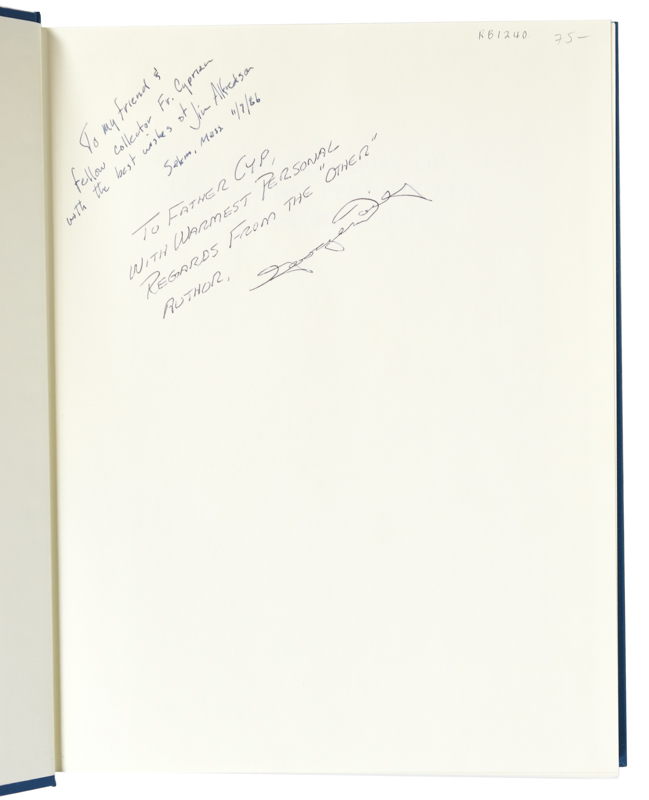 RB1240 75-
To my friend &
fellow collector Fr. Cyprian
with the best wishes of Jim Alfredson
Salem, Mass 11/7/86
TO FATHER CYP,
WITH WARMEST PERSONAL
REGARDS FROM THE "OTHER"
AUTHOR,